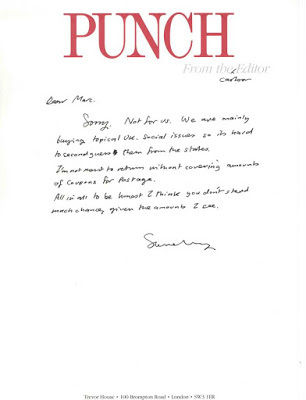 PUNCH
From the Editor
Cartoon
Dear Marc.
Sorry. Not for us. We are mainly
buying topical U.K. social issues so its hard
to second guess them from the states.
I'm not meant to return without covering amounts
of for postage.
All in all to be honest I think you don't stand
much chance, given the amounts I see.
Trevor House • 100 Brompton Road • London • SW3 1ER